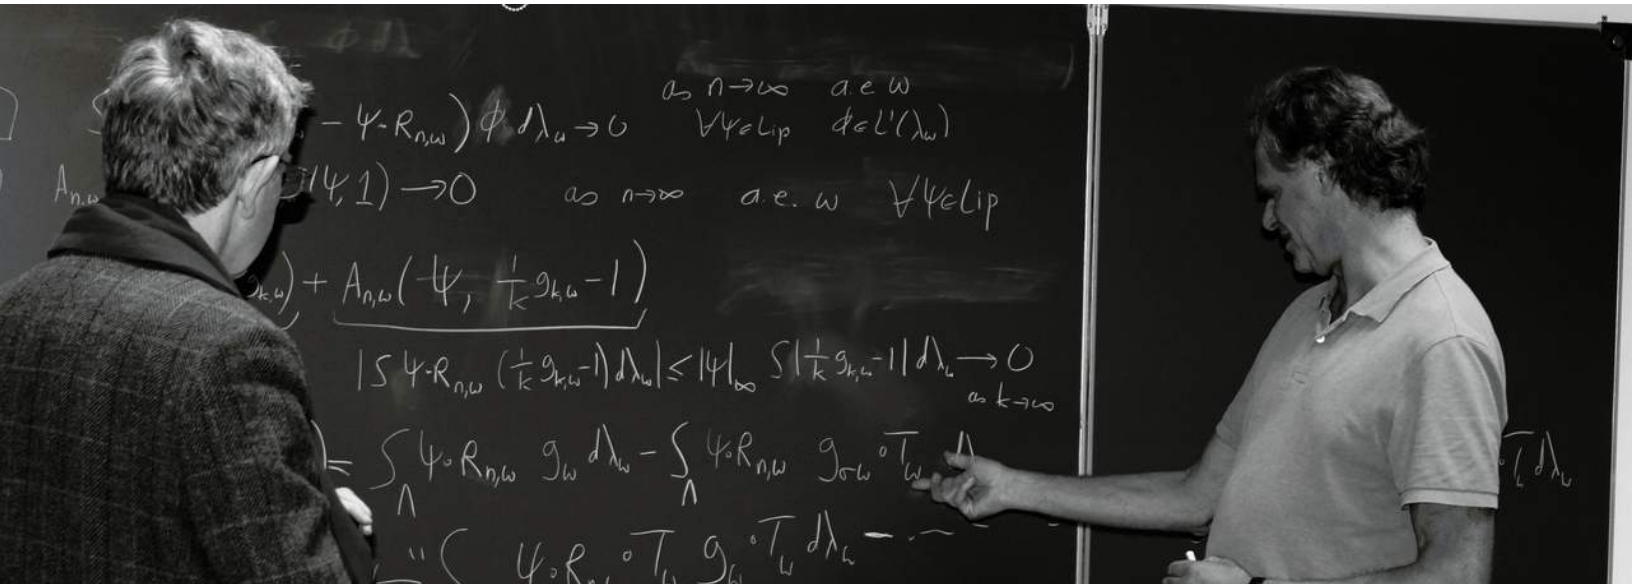 φ dλ
− ψ∘R_{n,ω}) φ dλ_ω → 0 as n→∞ a.e ω ∀ψ∈Lip φ∈L¹(λ_ω)
A_{n,ω} (ψ, 1) → 0 as n→∞ a.e. ω ∀ψ∈Lip
g_{k,ω}) + A_{n,ω}(ψ, \frac{1}{k} g_{k,ω} − 1)
|∫ ψ∘R_{n,ω} (\frac{1}{k} g_{k,ω} − 1) dλ_ω| ≤ |ψ|_∞ ∫ |\frac{1}{k} g_{k,ω} − 1| dλ_ω → 0
as k→∞
= ∫_Λ ψ∘R_{n,ω} g_ω dλ_ω − ∫_Λ ψ∘R_{n,ω} g_{σω}∘T_ω dλ
∘T_ω dλ_ω
" ∫ ψ∘R_{n,ω}∘T_ω g_ω∘T_ω dλ_ω −